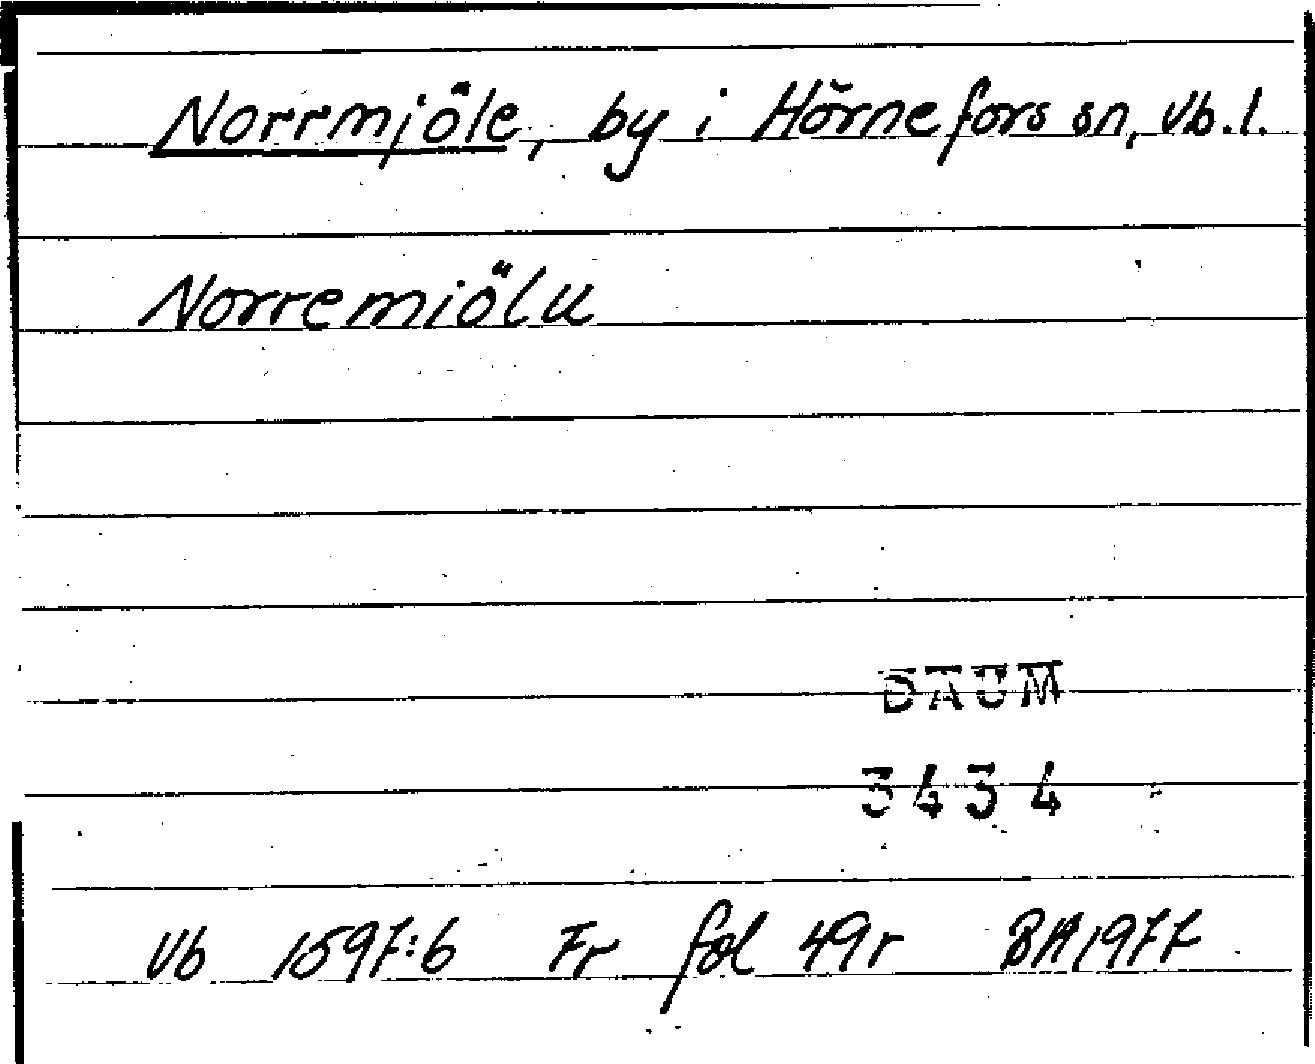 Norrmjöle, by i Hörnefors sn, Vb.l.
Norremiölu
DAUM
3434
Vb 1597:6 Fr fol 49r BA1977